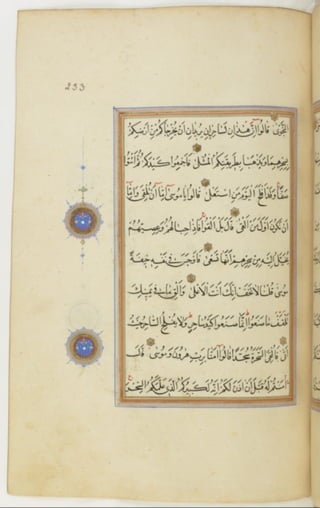 233
النَّجْوٰى قَالُوا اِنْ هٰذَانِ لَسَاحِرَانِ يُرِيدَانِ اَنْ يُخْرِجَاكُمْ مِنْ اَرْضِكُمْ
بِسِحْرِهِمَا وَيَذْهَبَا بِطَرِيقَتِكُمُ الْمُثْلٰى فَاَجْمِعُوا كَيْدَكُمْ ثُمَّ ائْتُوا
صَفًّا وَقَدْ اَفْلَحَ الْيَوْمَ مَنِ اسْتَعْلٰى قَالُوا يَا مُوسٰى اِمَّا اَنْ تُلْقِيَ وَاِمَّا
اَنْ نَكُونَ اَوَّلَ مَنْ اَلْقٰى قَالَ بَلْ اَلْقُوا فَاِذَا حِبَالُهُمْ وَعِصِيُّهُمْ
يُخَيَّلُ اِلَيْهِ مِنْ سِحْرِهِمْ اَنَّهَا تَسْعٰى فَاَوْجَسَ فِي نَفْسِهِ خِيفَةً
مُوسٰى قُلْنَا لَا تَخَفْ اِنَّكَ اَنْتَ الْاَعْلٰى وَاَلْقِ مَا فِي يَمِينِكَ
تَلْقَفْ مَا صَنَعُوا اِنَّمَا صَنَعُوا كَيْدُ سَاحِرٍ وَلَا يُفْلِحُ السَّاحِرُ حَيْثُ
اَتٰى فَاُلْقِيَ السَّحَرَةُ سُجَّدًا قَالُوا اٰمَنَّا بِرَبِّ هٰرُونَ وَمُوسٰى قَالَ
اٰمَنْتُمْ لَهُ قَبْلَ اَنْ اٰذَنَ لَكُمْ اِنَّهُ لَكَبِيرُكُمُ الَّذِي عَلَّمَكُمُ السِّحْرَ